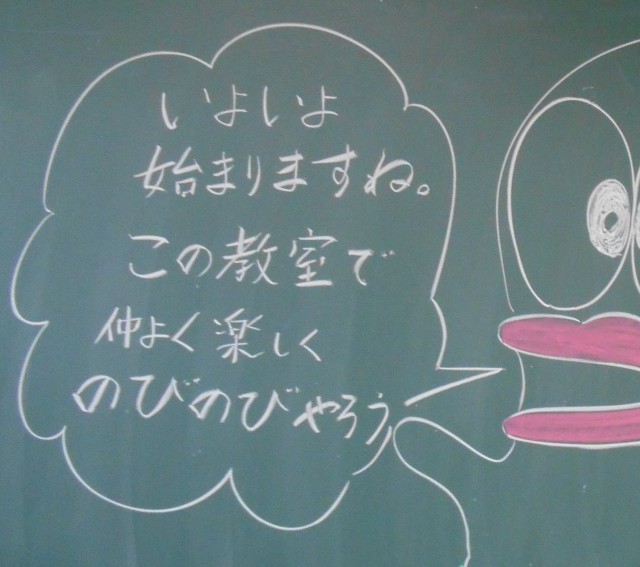 いよいよ
始まりますね。
この教室で
仲よく楽しく
のびのびやろう